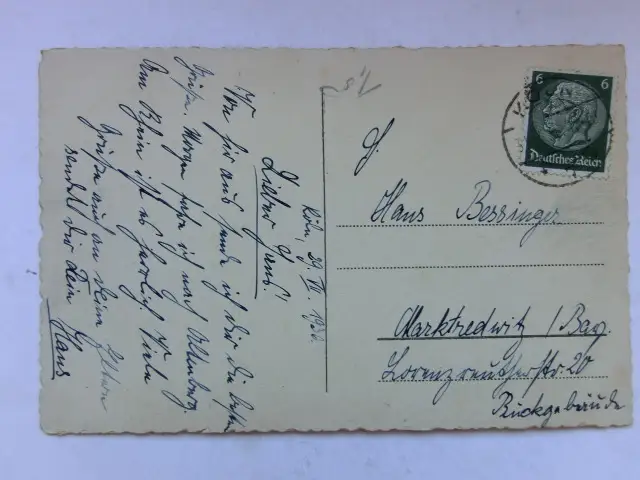 Köln, 29. VII. 1940.
Lieber Hans!
Von hier aus sende ich dir die besten
Grüße. Morgen fahre ich nach Altenberg
Am Rhein ist es herrlich Viele
Grüße auch an deine Eltern
sendet dir dein Hans
6 6
Deutsches Reich
Hans Bessinger
Marktredwitz / Bay.
Lorenzreutherstr. 20
Rückgebäude